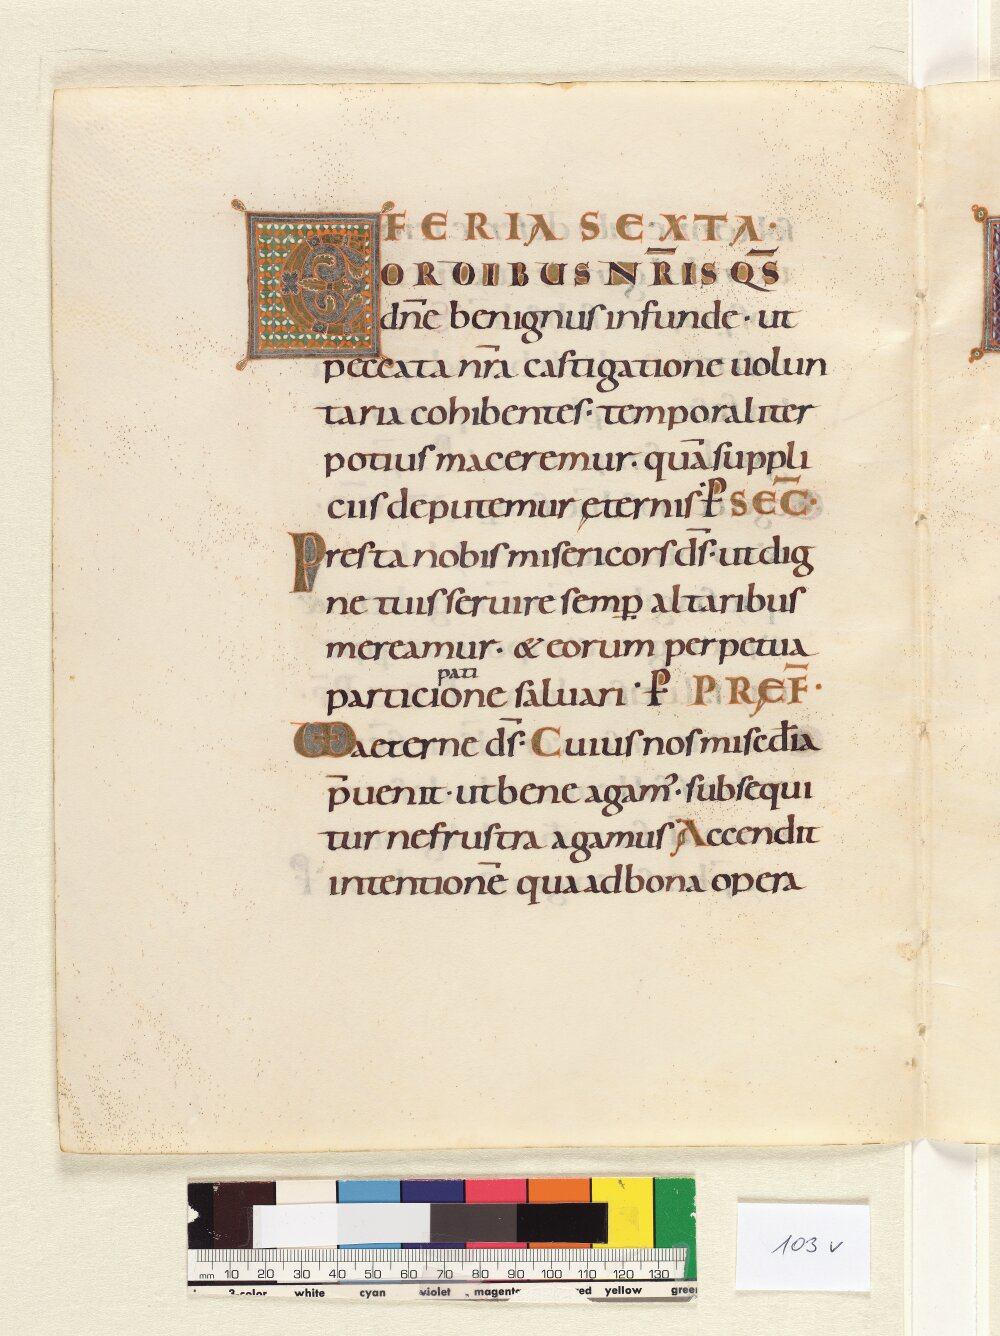 FERIA SEXTA·
CORDIBUS NR̄IS QS̄
dn̄e benignus infunde· ut
peccata nr̄a castigatione uolun
taria cohibentes· temporaliter
potius maceremur· quā suppli
ciis deputemur ęternis· P̱ SEC̄·
Presta nobis misericors ds̄· ut dig
ne tuis seruire semp̱ altaribus
mereamur· & eorum perpetua
pati
particione saluari· P̱ PRĘF̄·
VD aeterne ds̄· Cuius nos misedia
p̄uenit· ut bene agam᾿· subsequi
tur ne frustra agamus Accendit
intentionē qua ad bona opera
mm 10 20 30 40 50 60 70 80 90 100 110 120 130
3-color white cyan violet magent red yellow gree
103 v